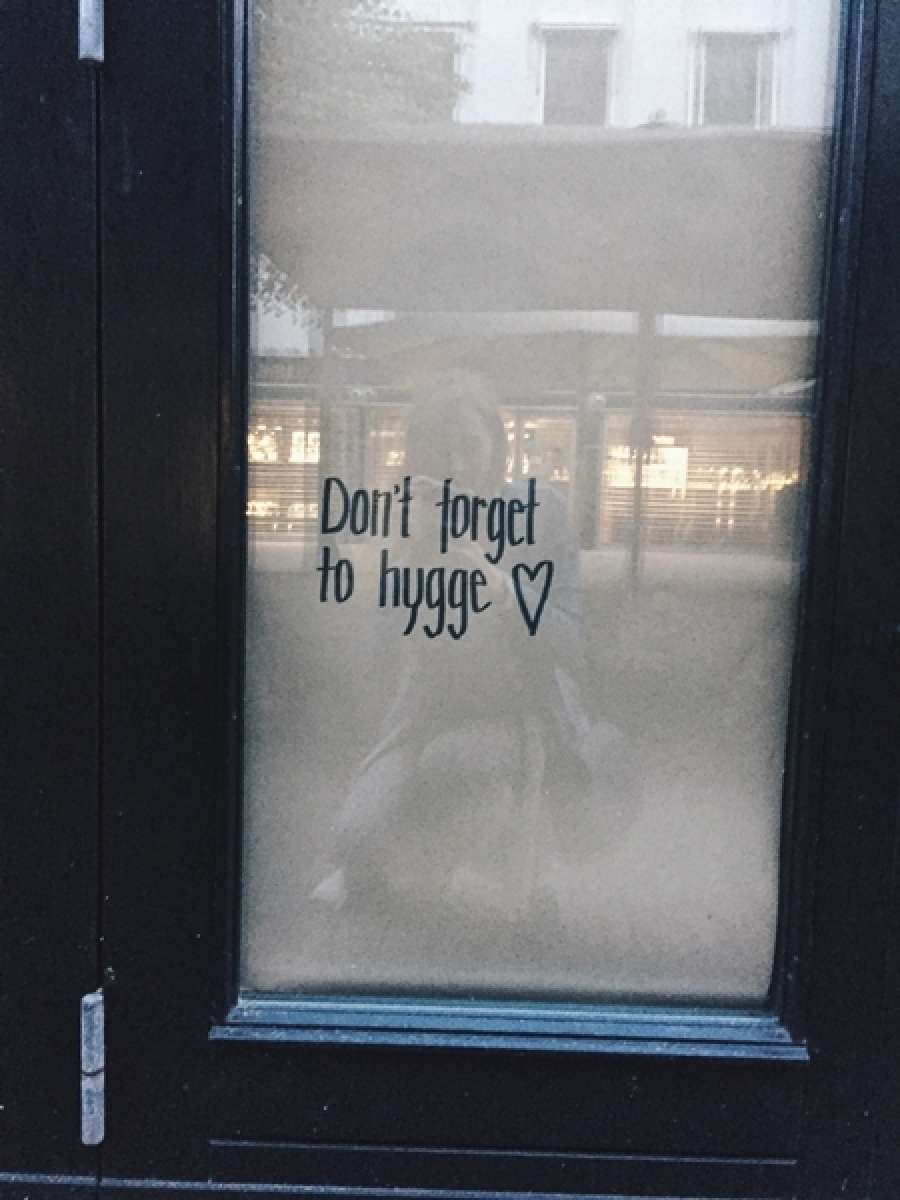 Don't forget
to hygge ♡